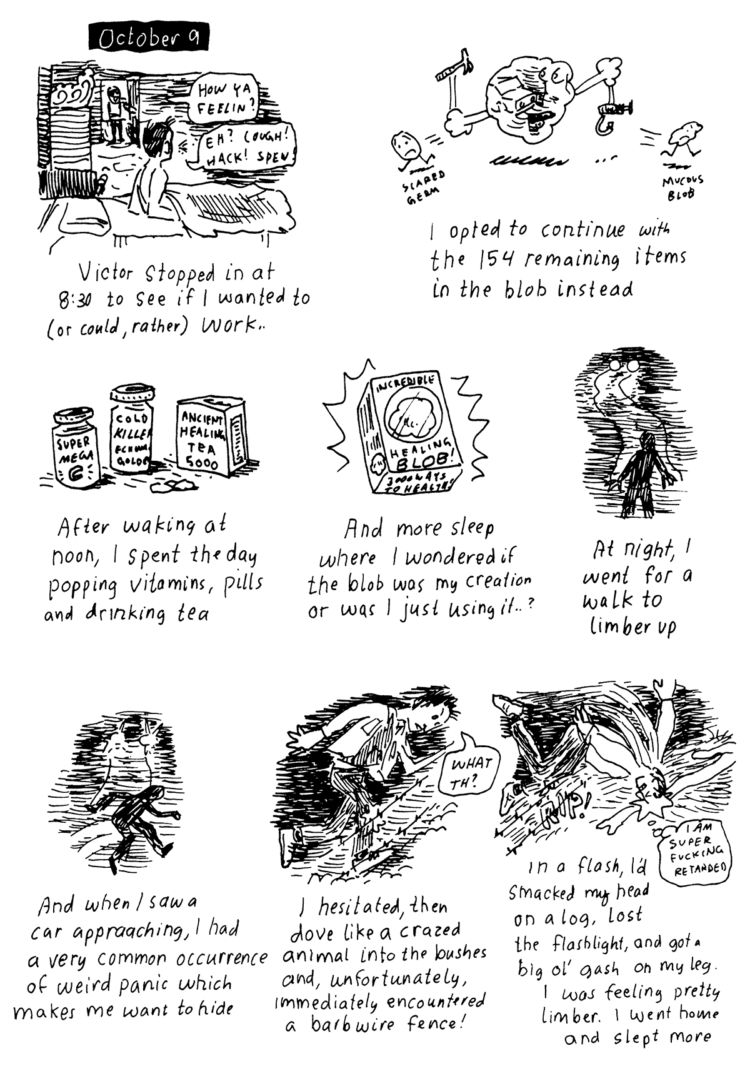 October 9
HOW YA
FEELIN?
EH? COUGH!
HACK! SPEW
Victor stopped in at
8:30 to see if I wanted to
(or could, rather) work..
SCARED
GERM
MUCOUS
BLOB
I opted to continue with
the 154 remaining items
in the blob instead
SUPER
MEGA
C
COLD
KILLER
ANCIENT
HEALING
TEA
5000
After waking at
noon, I spent the day
popping vitamins, pills
and drinking tea
INCREDIBLE
HEALING
BLOB!
3000 WAYS
TO HEALTH!
And more sleep
where I wondered if
the blob was my creation
or was I just using it..?
At night, I
went for a
walk to
limber up
And when I saw a
car appraaching, I had
a very common occurrence
of weird panic which
makes me want to hide
WHAT
TH?
I hesitated, then
dove like a crazed
animal into the bushes
and, unfortunately,
immediately encountered
a barbwire fence!
RIP!
I AM
SUPER
FUCKING
RETANDED
In a flash, I'd
smacked my head
on a log, lost
the flashlight, and got a
big ol' gash on my leg.
I was feeling pretty
limber. I went home
and slept more